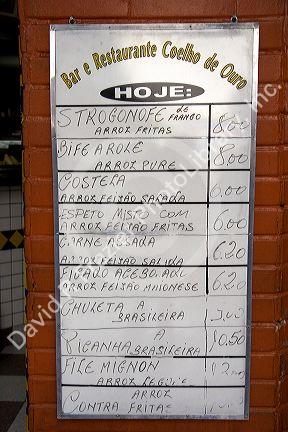 Bar e Restaurante Coelho de Ouro
HOJE:
STROGONOFE de FRANGO
ARROZ FRITAS 8,00
BIFE AROLE
ARROZ PURE 8,00
COSTELA
ARROZ FEIJÃO SALADA 6,00
ESPETO MISTO COM
ARROZ FEIJÃO FRITAS 6,00
CARNE ASSADA
ARROZ FEIJÃO SALADA 6,20
FIGADO ACEBOLADO
ARROZ FEIJÃO MAIONESE 6,20
CHULETA A
BRASILEIRA
PICANHA A
BRASILEIRA 10,50
FILE MIGNON
ARROZ
ARROZ
CONTRA FRITAS